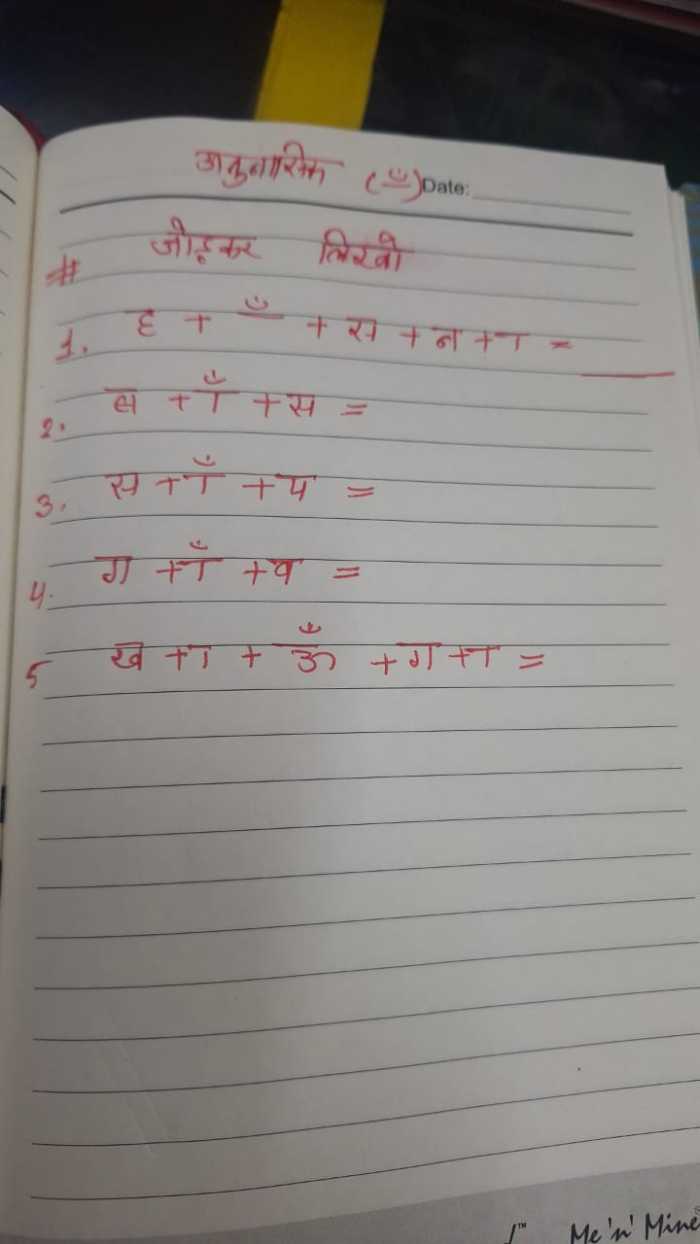 अनुनासिक (ँ) Date:
# जोड़कर लिखो
1. ह + ँ + स + न + ा = ____
2. ब + ाँ + स =
3. स + ाँ + प =
4. ग + ाँ + व =
5 ख + ा + ऊँ + ग + ा =
Me 'n' Mine